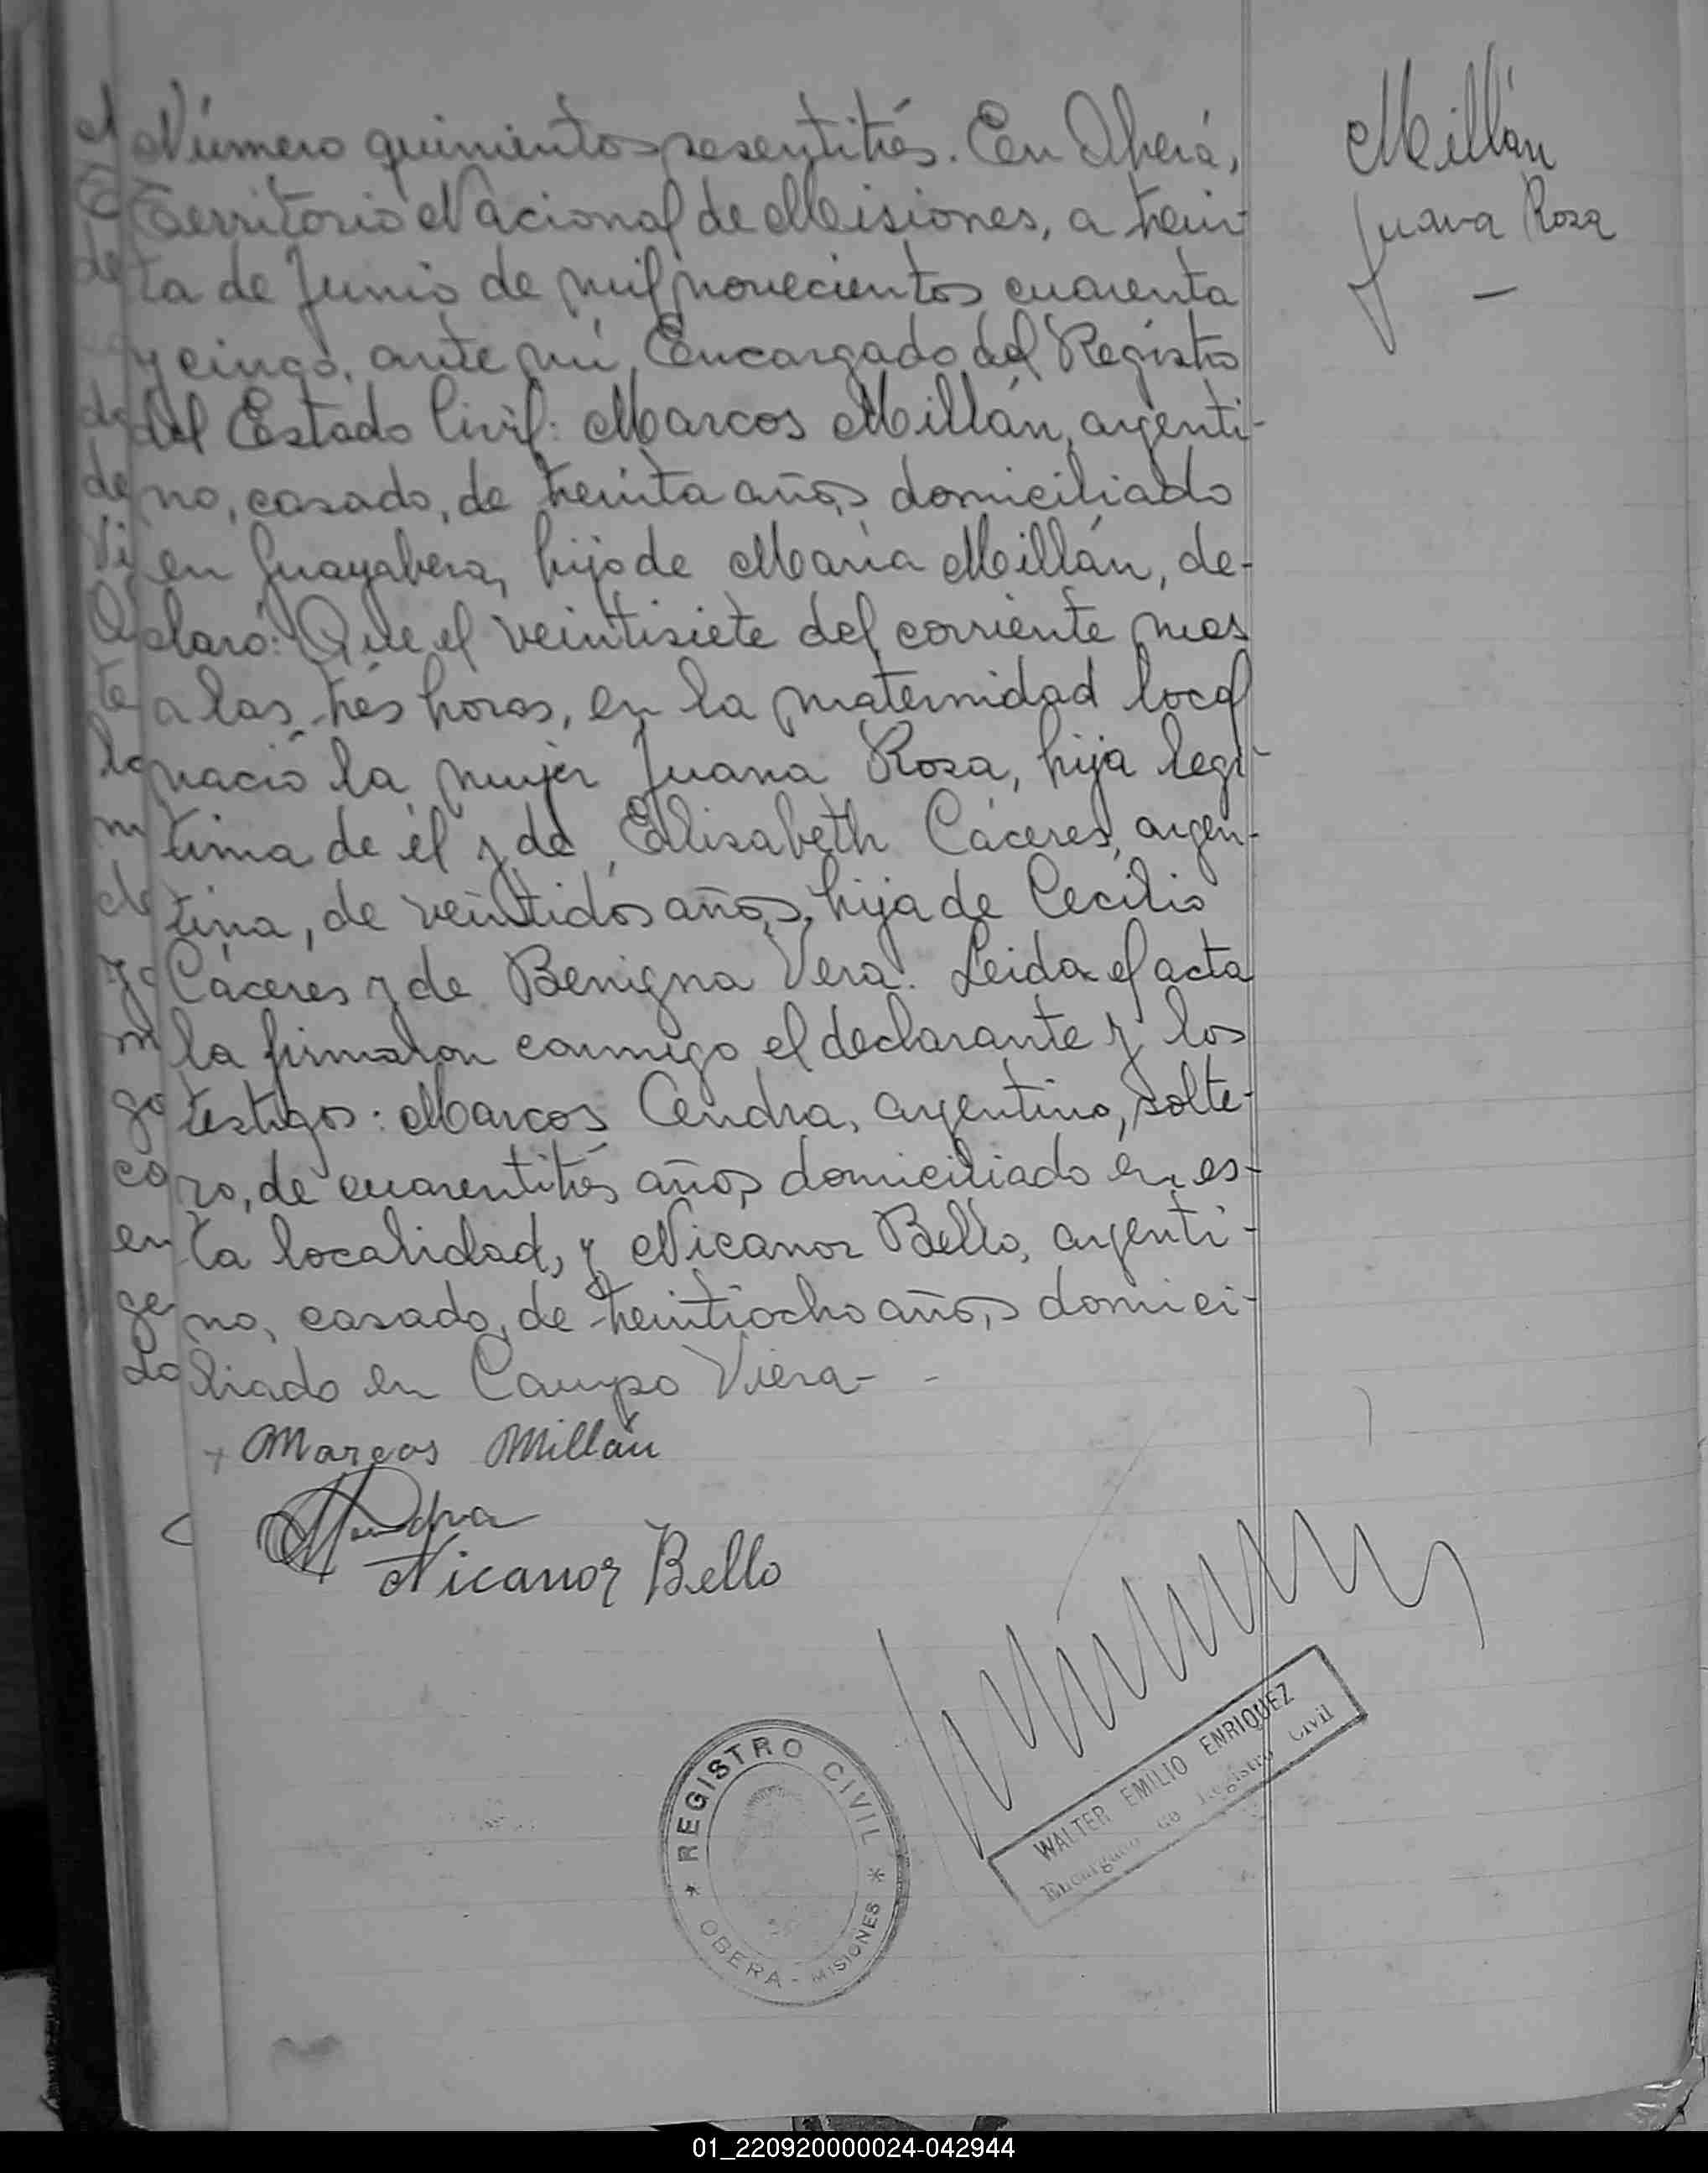 Número quinientos sesentitrés. En Oberá,
Territorio Nacional de Misiones, a trein-
ta de Junio de mil novecientos cuarenta
y cinco, ante mí, Encargado del Registro
del Estado Civil: Marcos Millán, argenti-
no, casado, de treinta años, domiciliado
en Guayabera, hijo de María Millán, de-
claró: Que el veintisiete del corriente mes
a las trés horas, en la maternidad local
nació la mujer Juana Rosa, hija legí-
tima de él y de Elisabeth Cáceres, argen-
tina, de veintidós años, hija de Cecilio
Cáceres y de Benigna Vera. Leida el acta
la firmaron conmigo el declarante y los
testigos: Marcos Cendra, argentino, solte-
ro, de cuarentitrés años, domiciliado en es-
ta localidad, y Nicanor Bello, argenti-
no, casado, de treintiocho años, domici-
liado en Campo Viera-
Millán
Juana Rosa
Marcos Millán
Nicanor Bello
WALTER EMILIO ENRIQUEZ
Encargado de Registro Civil
REGISTRO CIVIL
OBERA - MISIONES
01_220920000024-042944